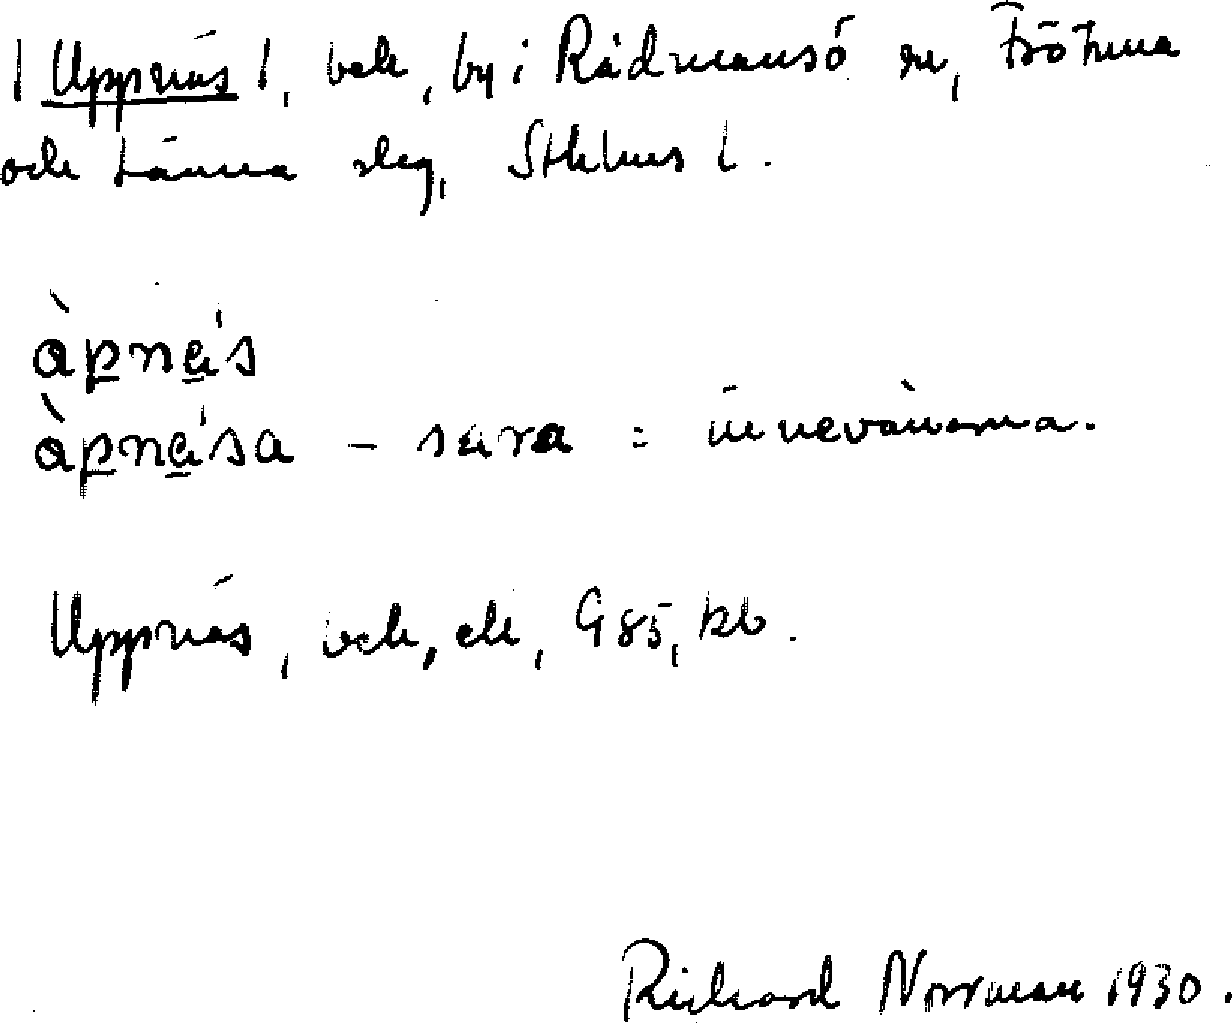 | Uppnäs |, bek, by i Rådmansö sn, Fröhuna
och Länna slg, Sthlms l.
àpnä's
àpnä'sa – sara = innevånarna.
Uppnäs, bek, ek, G 85, kb.
Richard Norrman 1930.